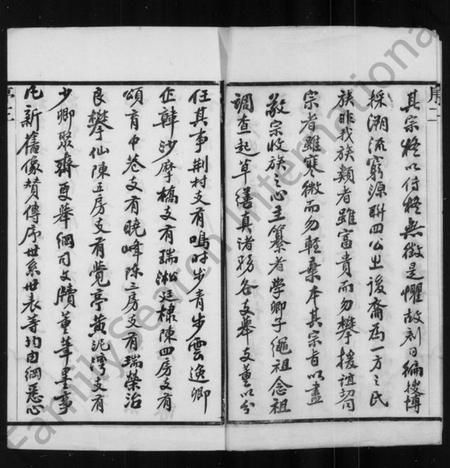 序二
其宗終以付終無徵是懼故刻日編搜博
採溯流窮源聯四公之後裔為一方之民
族非我族類者雖富貴而勿攀援誼切同
宗者雖寒微而勿輕棄本其宗旨以盡
敬宗收族之心主纂者學卿子繩祖念祖
調查起草繕真諸務各支舉支董以分
任其事荊村支有鳴時步青步雲逸卿
庄韓沙摩橋支有瑞淞廷棣陳四房支有
頌育中巷支有曉峰陳三房支有瑞榮治
良攀仙陳五房支有覺亭黃泥灣支有
少卿聚齋更舉綱司文牘董華墨事
凡新舊像贊傳序世系世表等均由綱悉心
序三
FamilySearch International